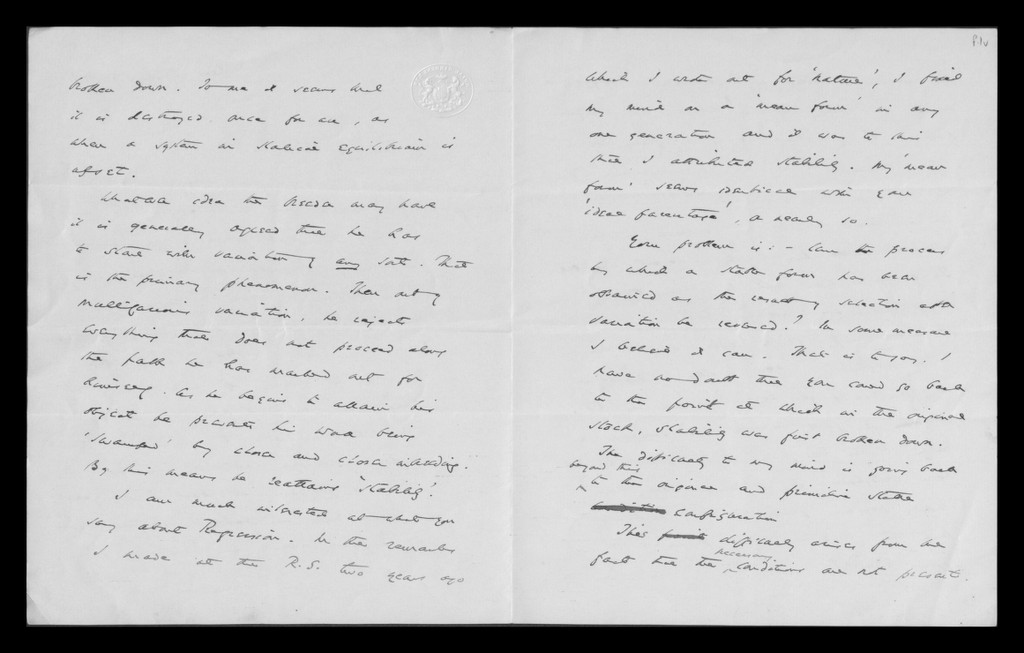 broken down. To me it seems that
it is destroyed once for all, as
when a system in stable equilibrium is
upset.
Whatever idea the breeder may have
it is generally agreed that he has
to start with variation of any sort. That
is the primary phenomenon. Then out of
multifarious variation, he rejects
everything that does not proceed along
the path he has marked out for
himself. As he begins to attain his
object he prevents his work being
'swamped' by closer and closer inbreeding.
By this means he reattains 'stability'.
I am much interested at what you
say about Regression. In the remarks
I made at the R.S. two years ago
P.1v
which I wrote out for 'Nature', I fixed
my mind on a 'mean form' in any
one generation and it was to this
that I attributed stability. My 'mean
form' seems identical with your
'ideal parentage', or nearly so.
Your problem is:- Can the process
by which a stable form has been
obtained as the result of selection and
variation be reversed? In some measure
I believe it can. That is to say, I
have no doubt that you could go back
to the point at which in the original
stock, stability was first broken down.
The difficulty to my mind is going back
beyond this
to the original and primitive stable
configuration
This difficulty arises from the
necessary
fact that the conditions are not present.